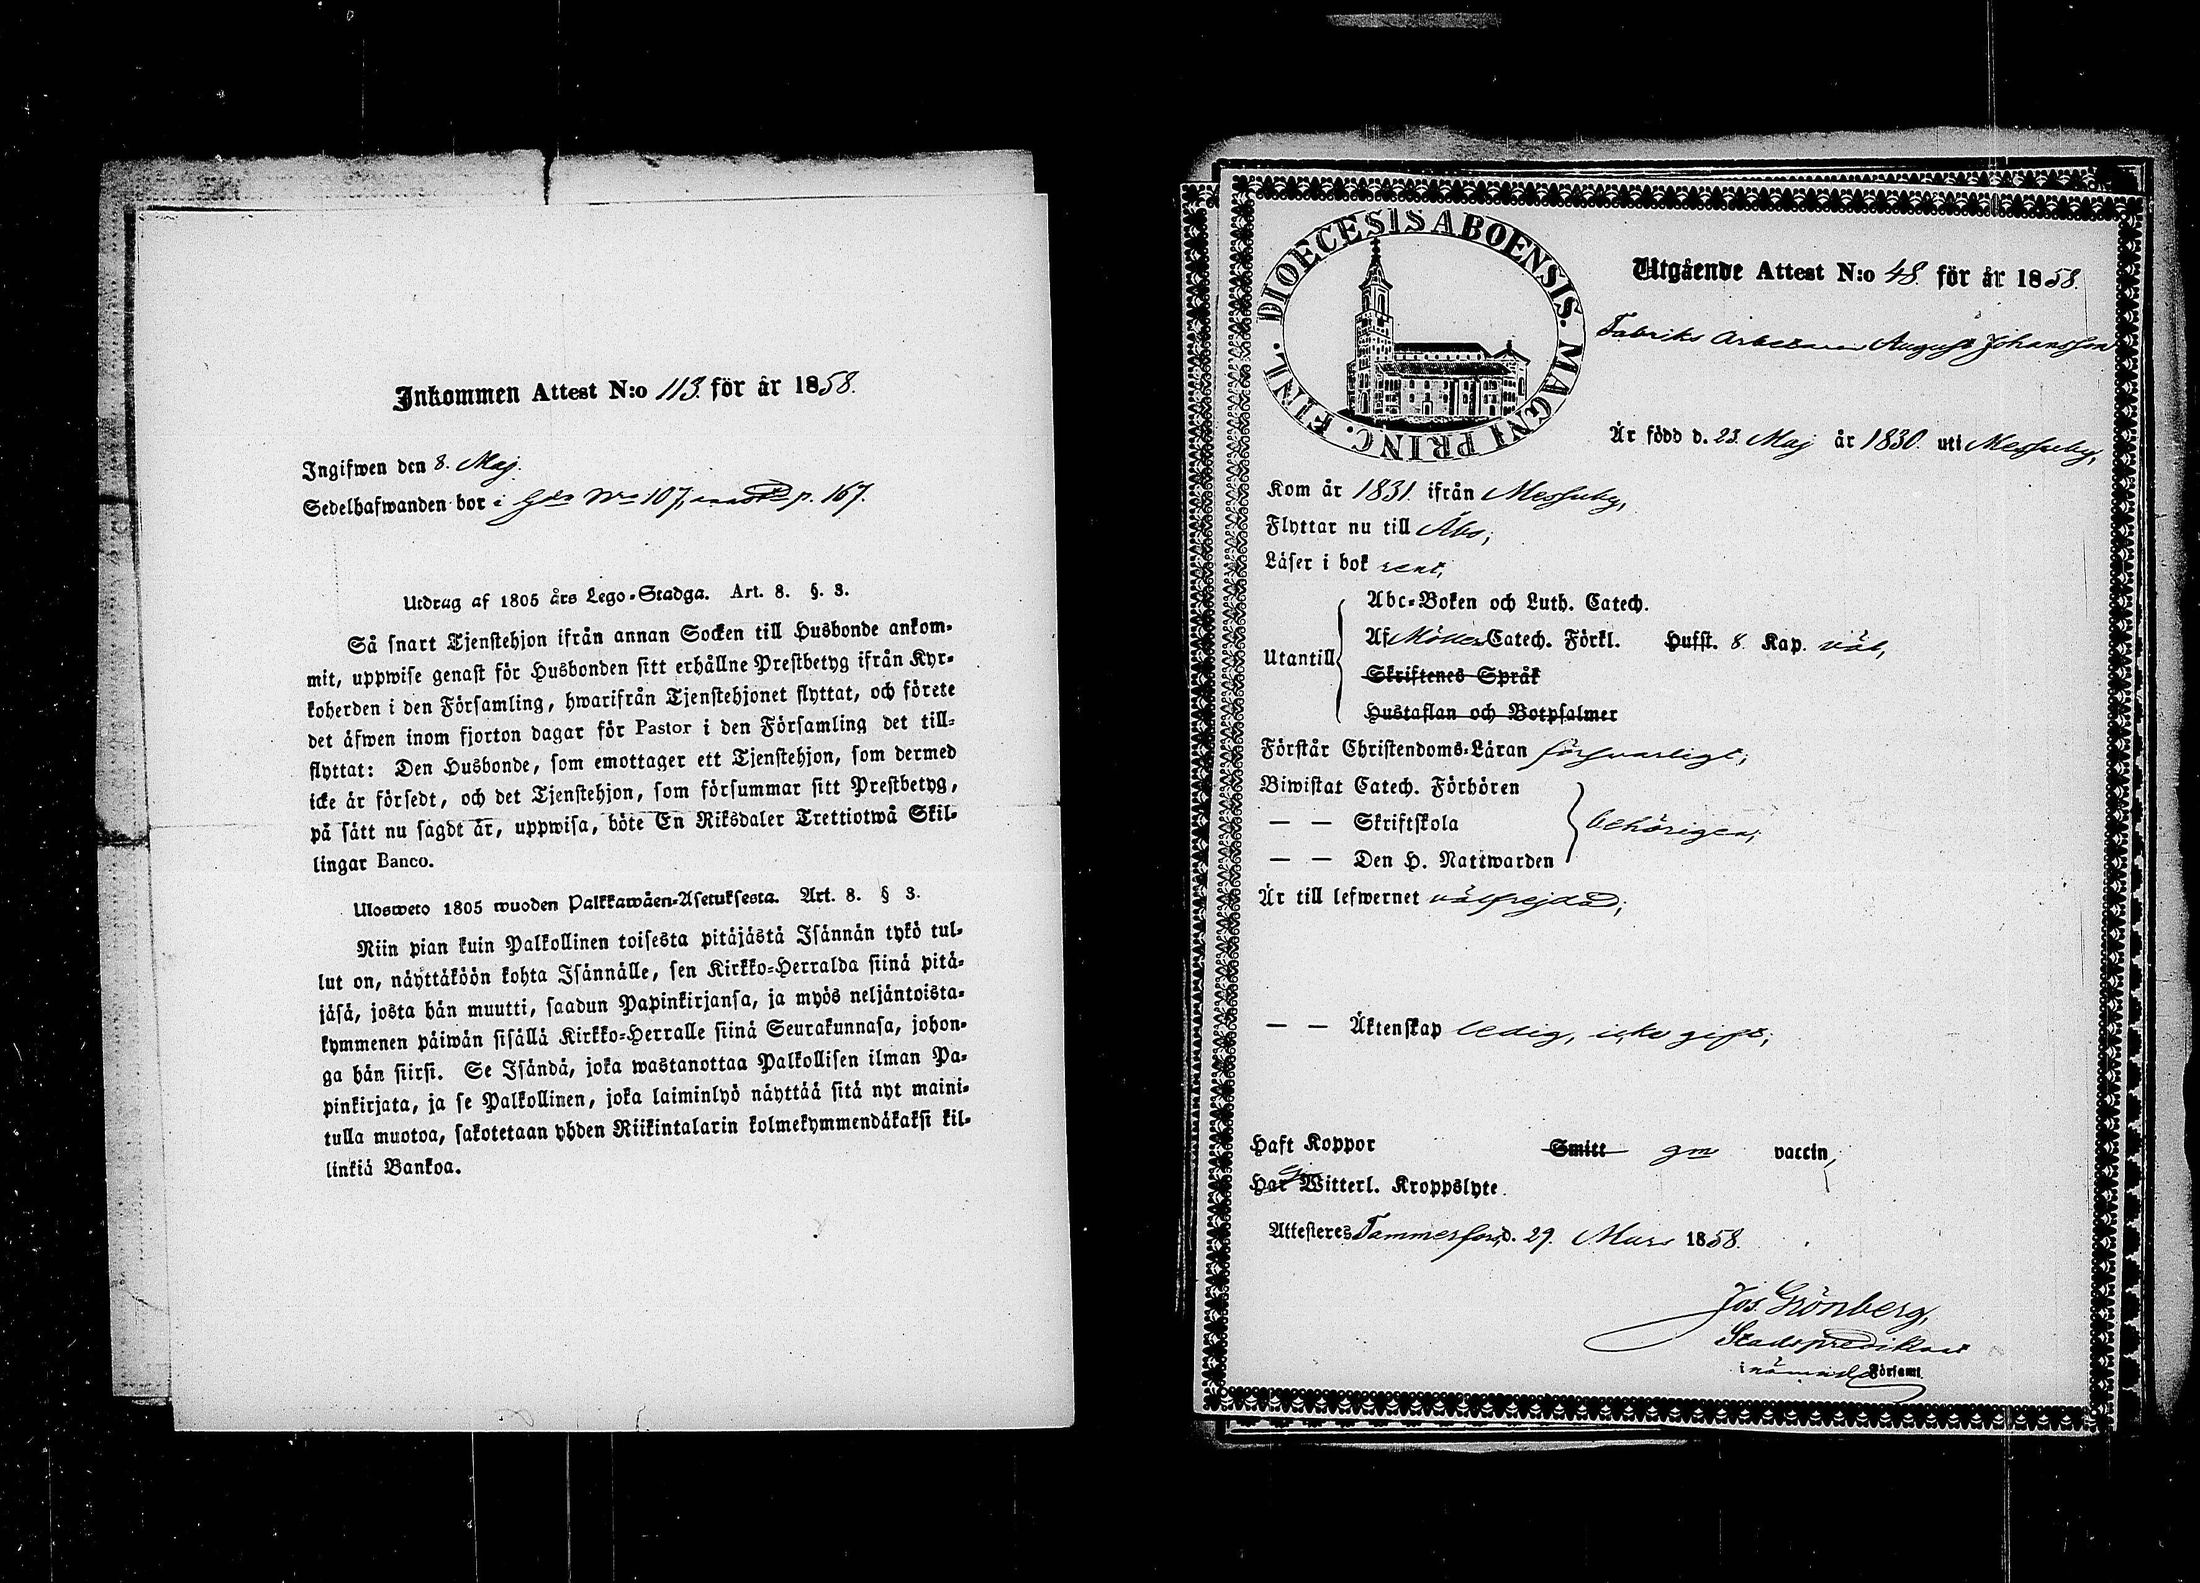 Inkommen Attest N:o 113. för år 1858.
Ingifwen den 8. Maj.
Sedelhafwanden bor i Går No 107, p. 167.
Utdrag af 1805 års Lego-Stadga. Art. 8. §. 3.
Så snart Tjenstehjon ifrån annan Socken till Husbonde ankom-
mit, uppwise genast för Husbonden sitt erhållne Prestbetyg ifrån Kyr-
koherden i den Församling, hwarifrån Tjenstehjonet flyttat, och förete
det äfwen inom fjorton dagar för Pastor i den Församling det till-
flyttat: Den Husbonde, som emottager ett Tjenstehjon, som dermed
icke är försedt, och det Tjenstehjon, som försummar sitt Prestbetyg,
på sätt nu sagdt är, uppwisa, böte En Riksdaler Trettiotwå Skil-
lingar Banco.
Ulosweto 1805 wuoden Palkkawäen-Asetuksesta. Art. 8. § 3.
Niin pian kuin Palkollinen toisesta pitäjästä Isännän tykö tul-
lut on, näyttäköön kohta Isännälle, sen Kirkko-Herralda siinä pitä-
jäsä, josta hän muutti, saadun Papinkirjansa, ja myös neljäntoista-
kymmenen päiwän sisällä Kirkko-Herralle siinä Seurakunnasa, johon-
ga hän siirsi. Se Isändä, joka wastanottaa Palkollisen ilman Pa-
pinkirjata, ja se Palkollinen, joka laiminlyö näyttää sitä nyt maini-
tulla muotoa, sakotetaan yhden Riikintalarin kolmekymmendäkaksi kil-
linkiä Bankoa.
DIOECESIS ABOENSIS. MAGNI PRINC. FINL.
Utgående Attest N:o 48. för år 1858.
Fabriks Arbetaren August Johansson
Är född d. 23. Maj år 1830. uti Messuby,
Kom år 1831. ifrån Messuby,
Flyttar nu till Åbo,
Läser i bok rent,
Abc-Boken och Luth. Catech.
Utantill Af Möllers Catech. Förkl. Husst. 8 Kap. väl,
Skriftenes Språk
Hustaflan och Botpsalmer
Förstår Christendoms-Läran försvarligt,
Biwistat Catech. Förhören
— — Skriftskola behörigen,
— — Den H. Nattwarden
Är till lefwernet välfrejdad,
— — Äktenskap ledig, icke gift,
Haft Koppor Smitt gm vaccin,
Har Witterl. Kroppslyte.
Attesteres Tammerfors, d. 29. Mars 1858.
Jos. Grönberg,
Stadspredikant
i nämnde Församl.